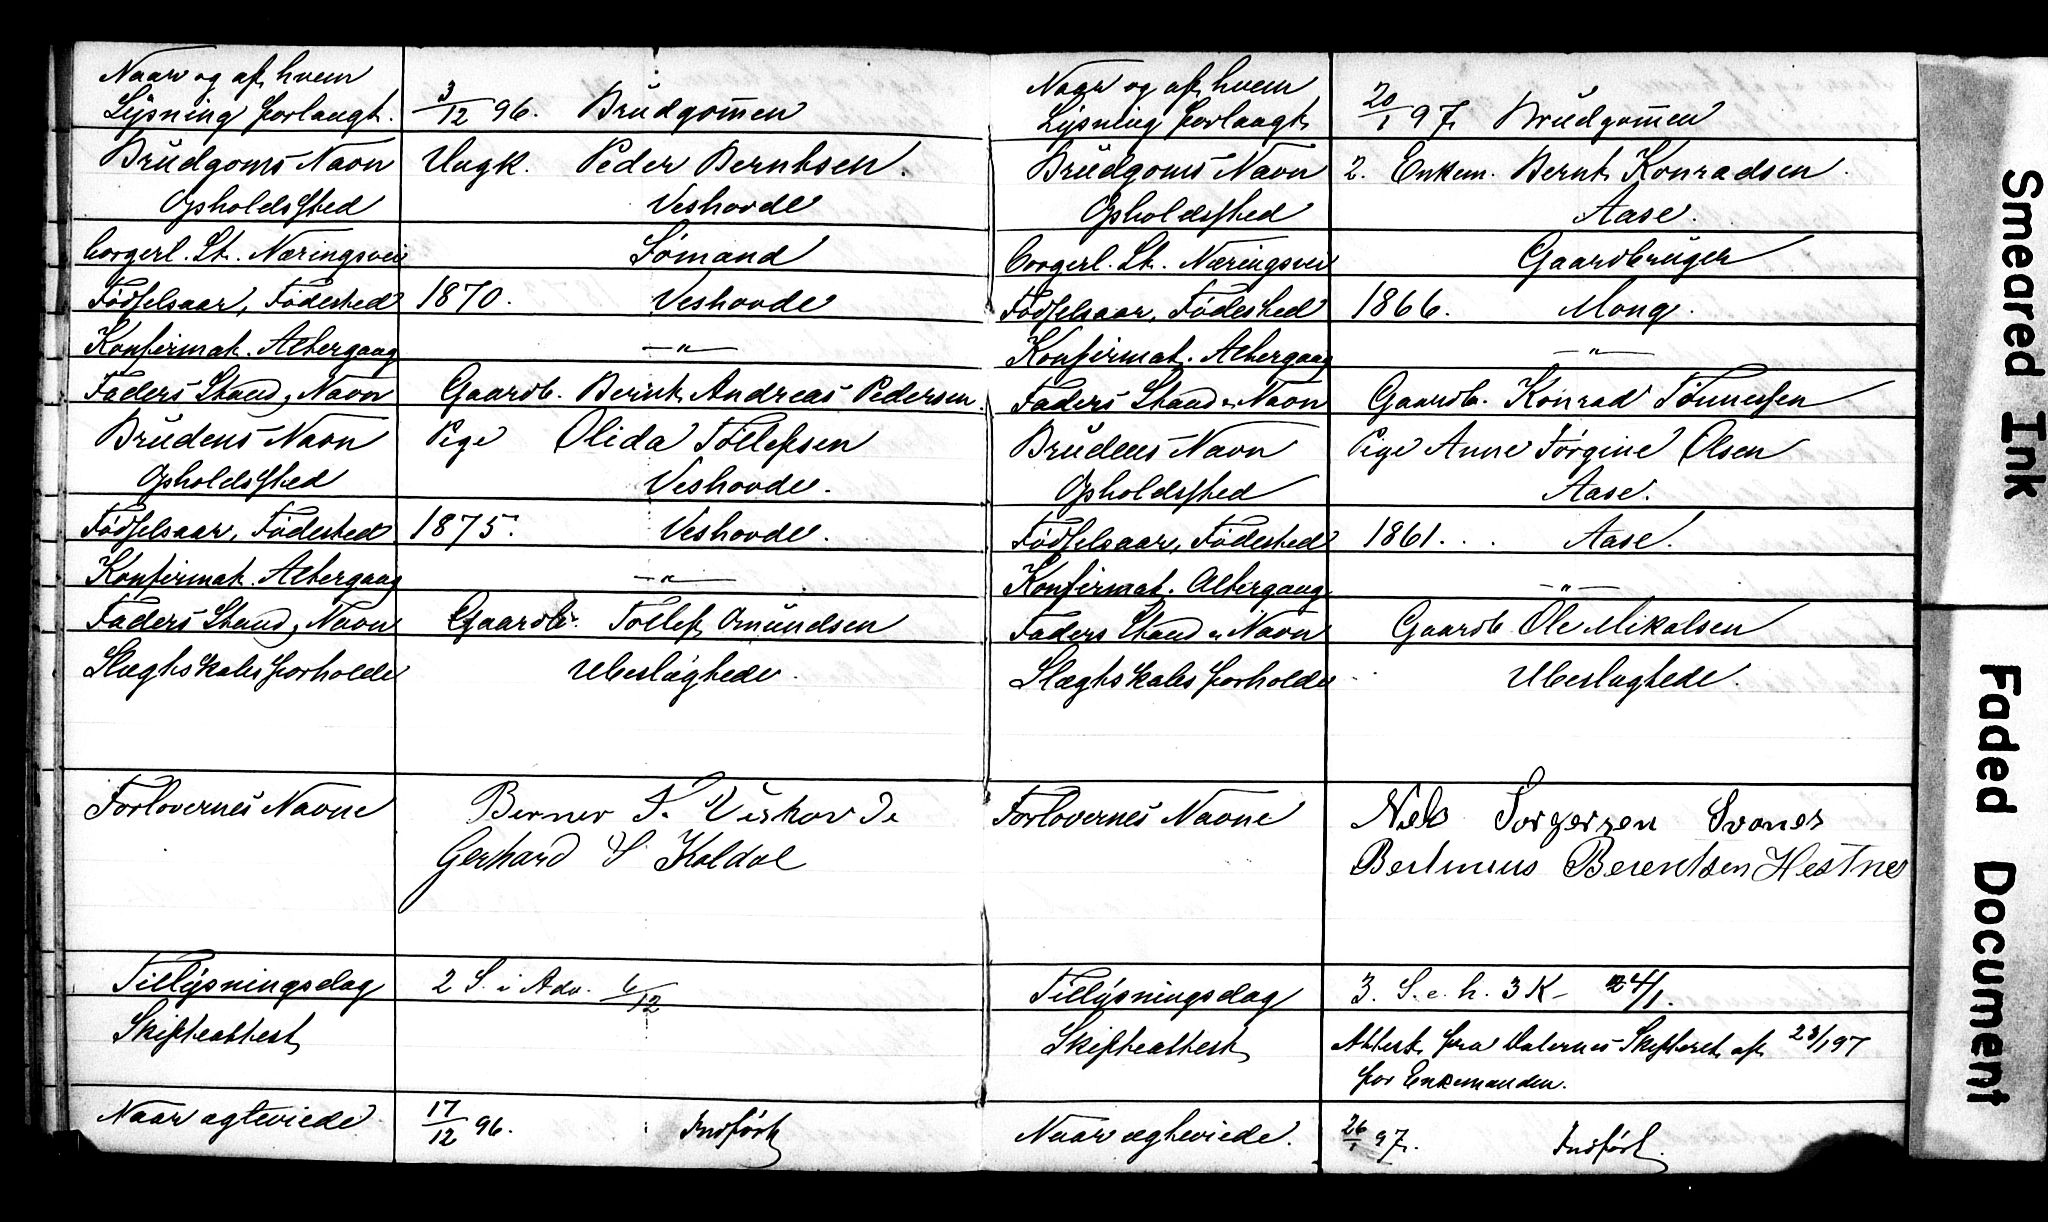 Naar og af hvem
Lysning forlangt. 3/12 96. Brudgommen
Brudgoms Navn Ungk. Peder Berntsen.
Opholdssted Veshovde
borgerl. St. Næringsvei Sømand
Fødselsaar, Fødested 1870. Veshovde
Konfirmat. Altergang —"—
Faders Stand, Navn Gaardb. Bernt Andreas Pedersen.
Brudens Navn Pige Olida Tollefsen
Opholdssted Veshovde.
Fødselsaar, Fødested 1875. Veshovde.
Konfirmat. Altergang —"—
Faders Stand, Navn Gaardb. Tollef Omundsen
Slægtskabsforholde Ubeslægtede.
Forlovernes Navne Berner T. Veshovde
Gerhard S Koldal
Tillysningsdag 2 S. i Adv. 6/12
Skifteattest
Naar ægteviede 17/12 96. Indført
Naar og af hvem
Lysning forlangt 20/1 97. Brudgommen
Brudgoms Navn 2. Enkem. Bernt Konradsen.
Opholdssted Aase.
borgerl. St. Næringsvei Gaardbruger
Fødselsaar, Fødested 1866. Mong.
Konfirmat. Altergang —"—
Faders Stand, Navn Gaardb. Konrad Tønnessen
Brudens Navn Pige Anne Jørgine Olsen
Opholdssted Aase.
Fødselsaar, Fødested 1861. Aase.
Konfirmat. Altergang —"—
Faders Stand, Navn Gaardb. Ole Mikalsen
Slægtskabsforholde Ubeslægtede.
Forlovernes Navne Nels Torgersen Svanes
Bertinius Berentsen Hestnes
Tillysningsdag 3. S. e. h. 3 K- 24/1.
Skifteattest Attest fra Dalernes Skifteret af 23/1 97
for Enkemanden.
Naar ægteviede. 26/1 97. Indført.
Smeared Ink
Faded Document